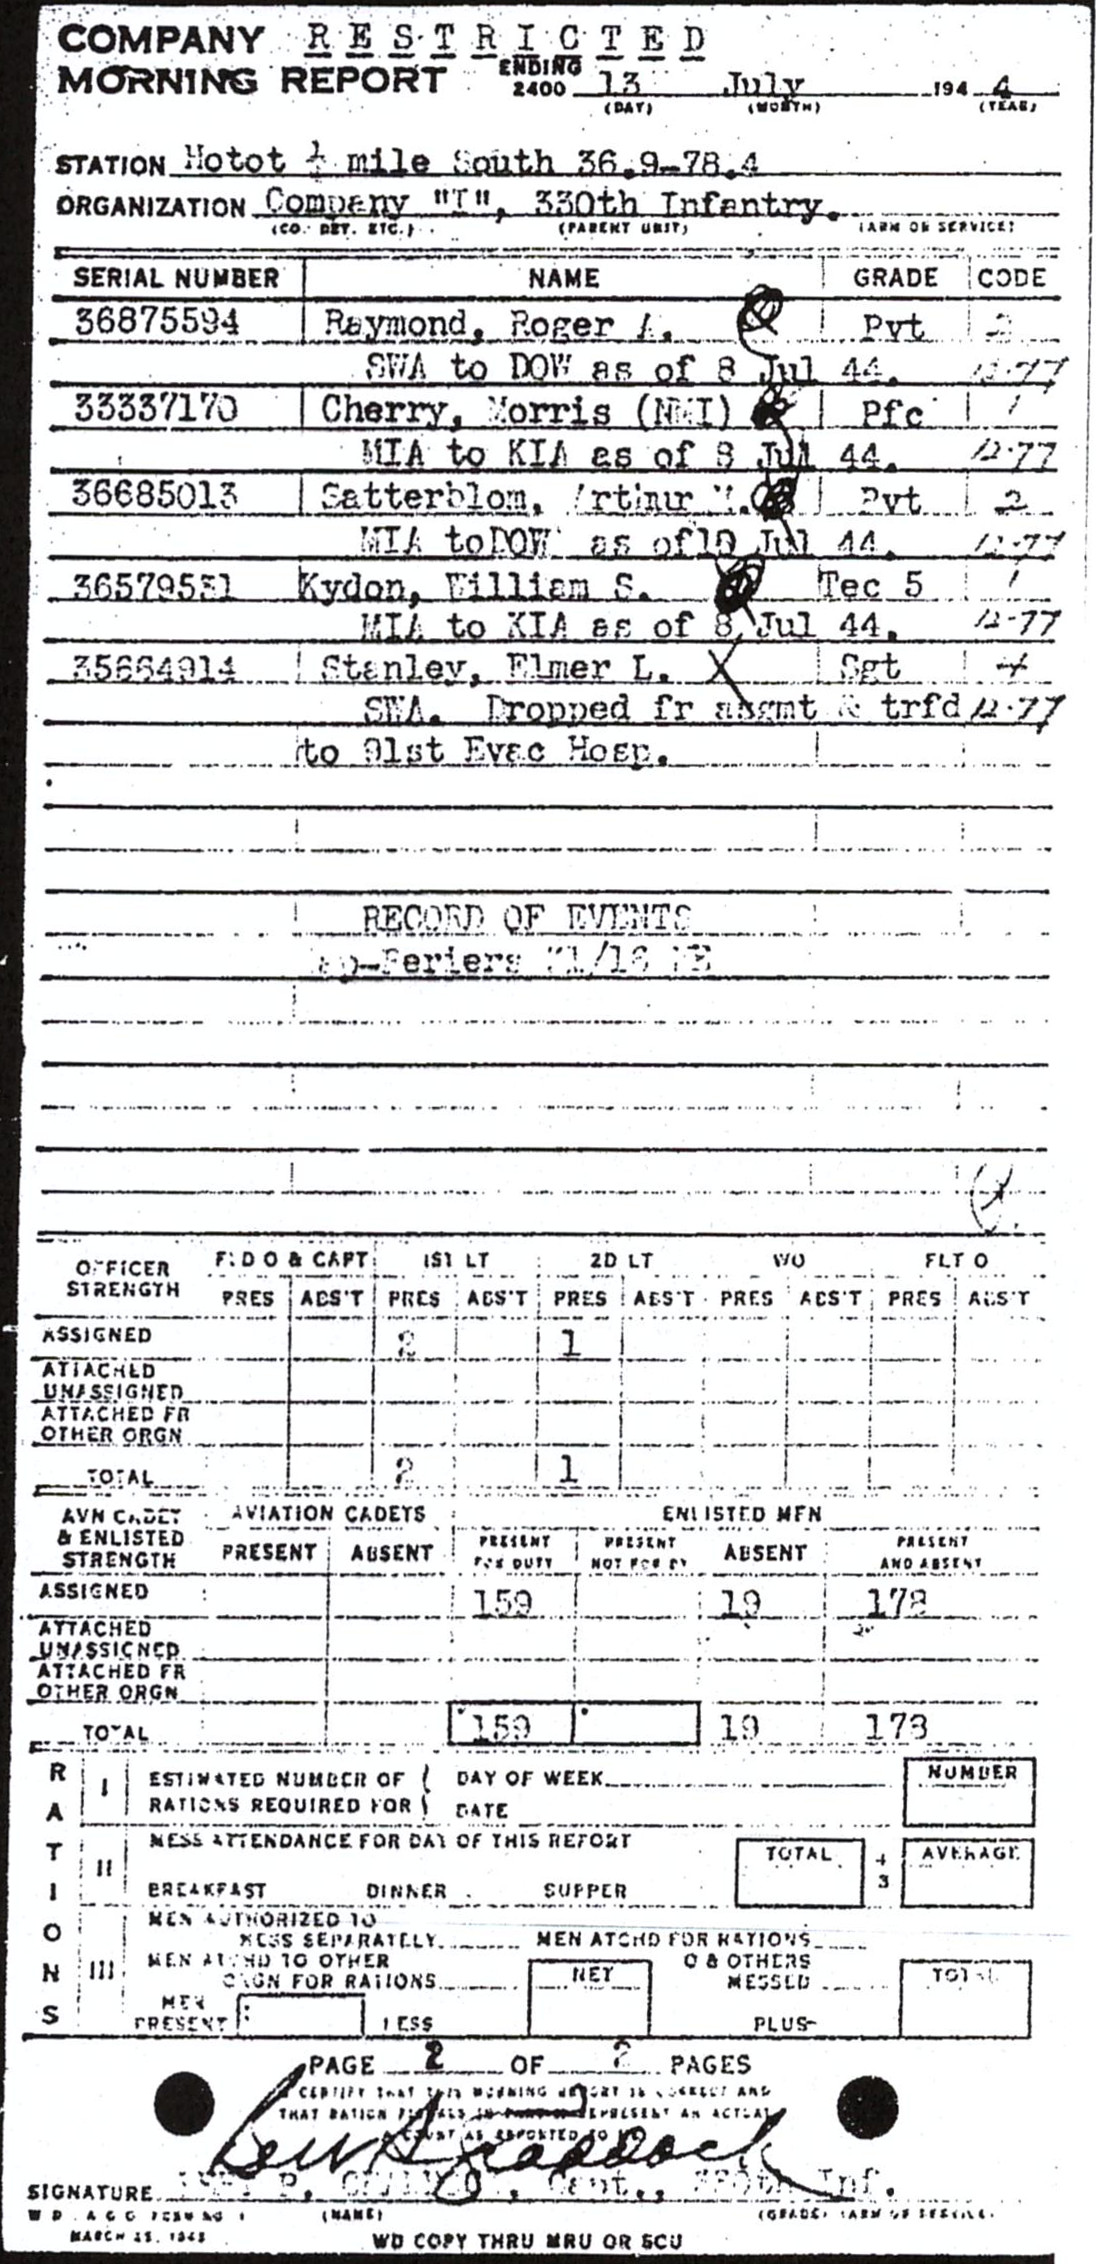 COMPANY RESTRICTED
MORNING REPORT ENDING 2400 13 July 194 4
(DAY) (MONTH) (YEAR)
STATION Hotot ½ mile South 36.9-78.4
ORGANIZATION Company "I", 330th Infantry.
(CO. DET. ETC.) (PARENT UNIT) (ARM OR SERVICE)
SERIAL NUMBER NAME GRADE CODE
36875594 Raymond, Roger A. Pvt 2
SWA to DOW as of 8 Jul 44. 12-77
33337170 Cherry, Morris (NMI) Pfc 1
MIA to KIA as of 8 Jul 44. 12-77
36685013 Satterblom, Arthur Pvt 2
MIA to DOW as of 10 Jul 44. 12-77
36579531 Kydon, William S. Tec 5 1
MIA to KIA as of 8 Jul 44. 12-77
35664914 Stanley, Elmer L. X Sgt 4
SWA. Dropped fr absgmt & trfd 12-77
to 91st Evac Hosp.
RECORD OF EVENTS
OFFICER STRENGTH FLD O & CAPT 1ST LT 2D LT WO FLT O
PRES ABS'T PRES ABS'T PRES ABS'T PRES ABS'T PRES ABS'T
ASSIGNED 2 1
ATTACHED UNASSIGNED
ATTACHED FR OTHER ORGN
TOTAL 2 1
AVN CADET & ENLISTED STRENGTH AVIATION CADETS ENLISTED MEN
PRESENT ABSENT PRESENT FOR DUTY PRESENT NOT FOR DY ABSENT PRESENT AND ABSENT
ASSIGNED 159 19 178
ATTACHED UNASSIGNED
ATTACHED FR OTHER ORGN
TOTAL 159 19 178
RATIONS
I ESTIMATED NUMBER OF RATIONS REQUIRED FOR DAY OF WEEK DATE NUMBER
II MESS ATTENDANCE FOR DAY OF THIS REPORT TOTAL ÷ 3 AVERAGE
BREAKFAST DINNER SUPPER
III MEN AUTHORIZED TO MESS SEPARATELY MEN ATCHD FOR RATIONS
MEN ATCHD TO OTHER ORGN FOR RATIONS NET O & OTHERS MESSED TOTAL
MEN PRESENT LESS PLUS
PAGE 2 OF 2 PAGES
I CERTIFY THAT THIS MORNING REPORT IS CORRECT AND
THAT RATION FIGURES IN PART II REPRESENT AN ACTUAL
COUNT AS REPORTED TO ME
SIGNATURE Capt., 330th Inf.
W D A G O FORM NO 1 (NAME) (GRADE) (ARM OF SERVICE)
MARCH 15, 1943 WD COPY THRU MRU OR SCU